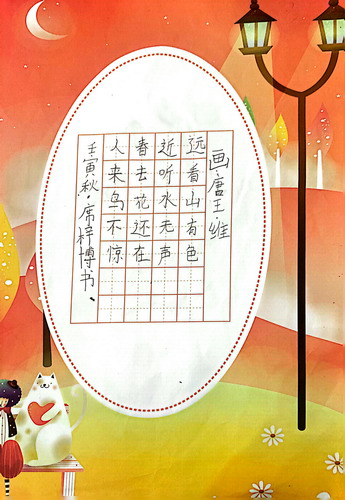 画·唐·王·维
远看山有色
近听水无声
春去花还在
人来鸟不惊
壬寅秋·席梓博书、